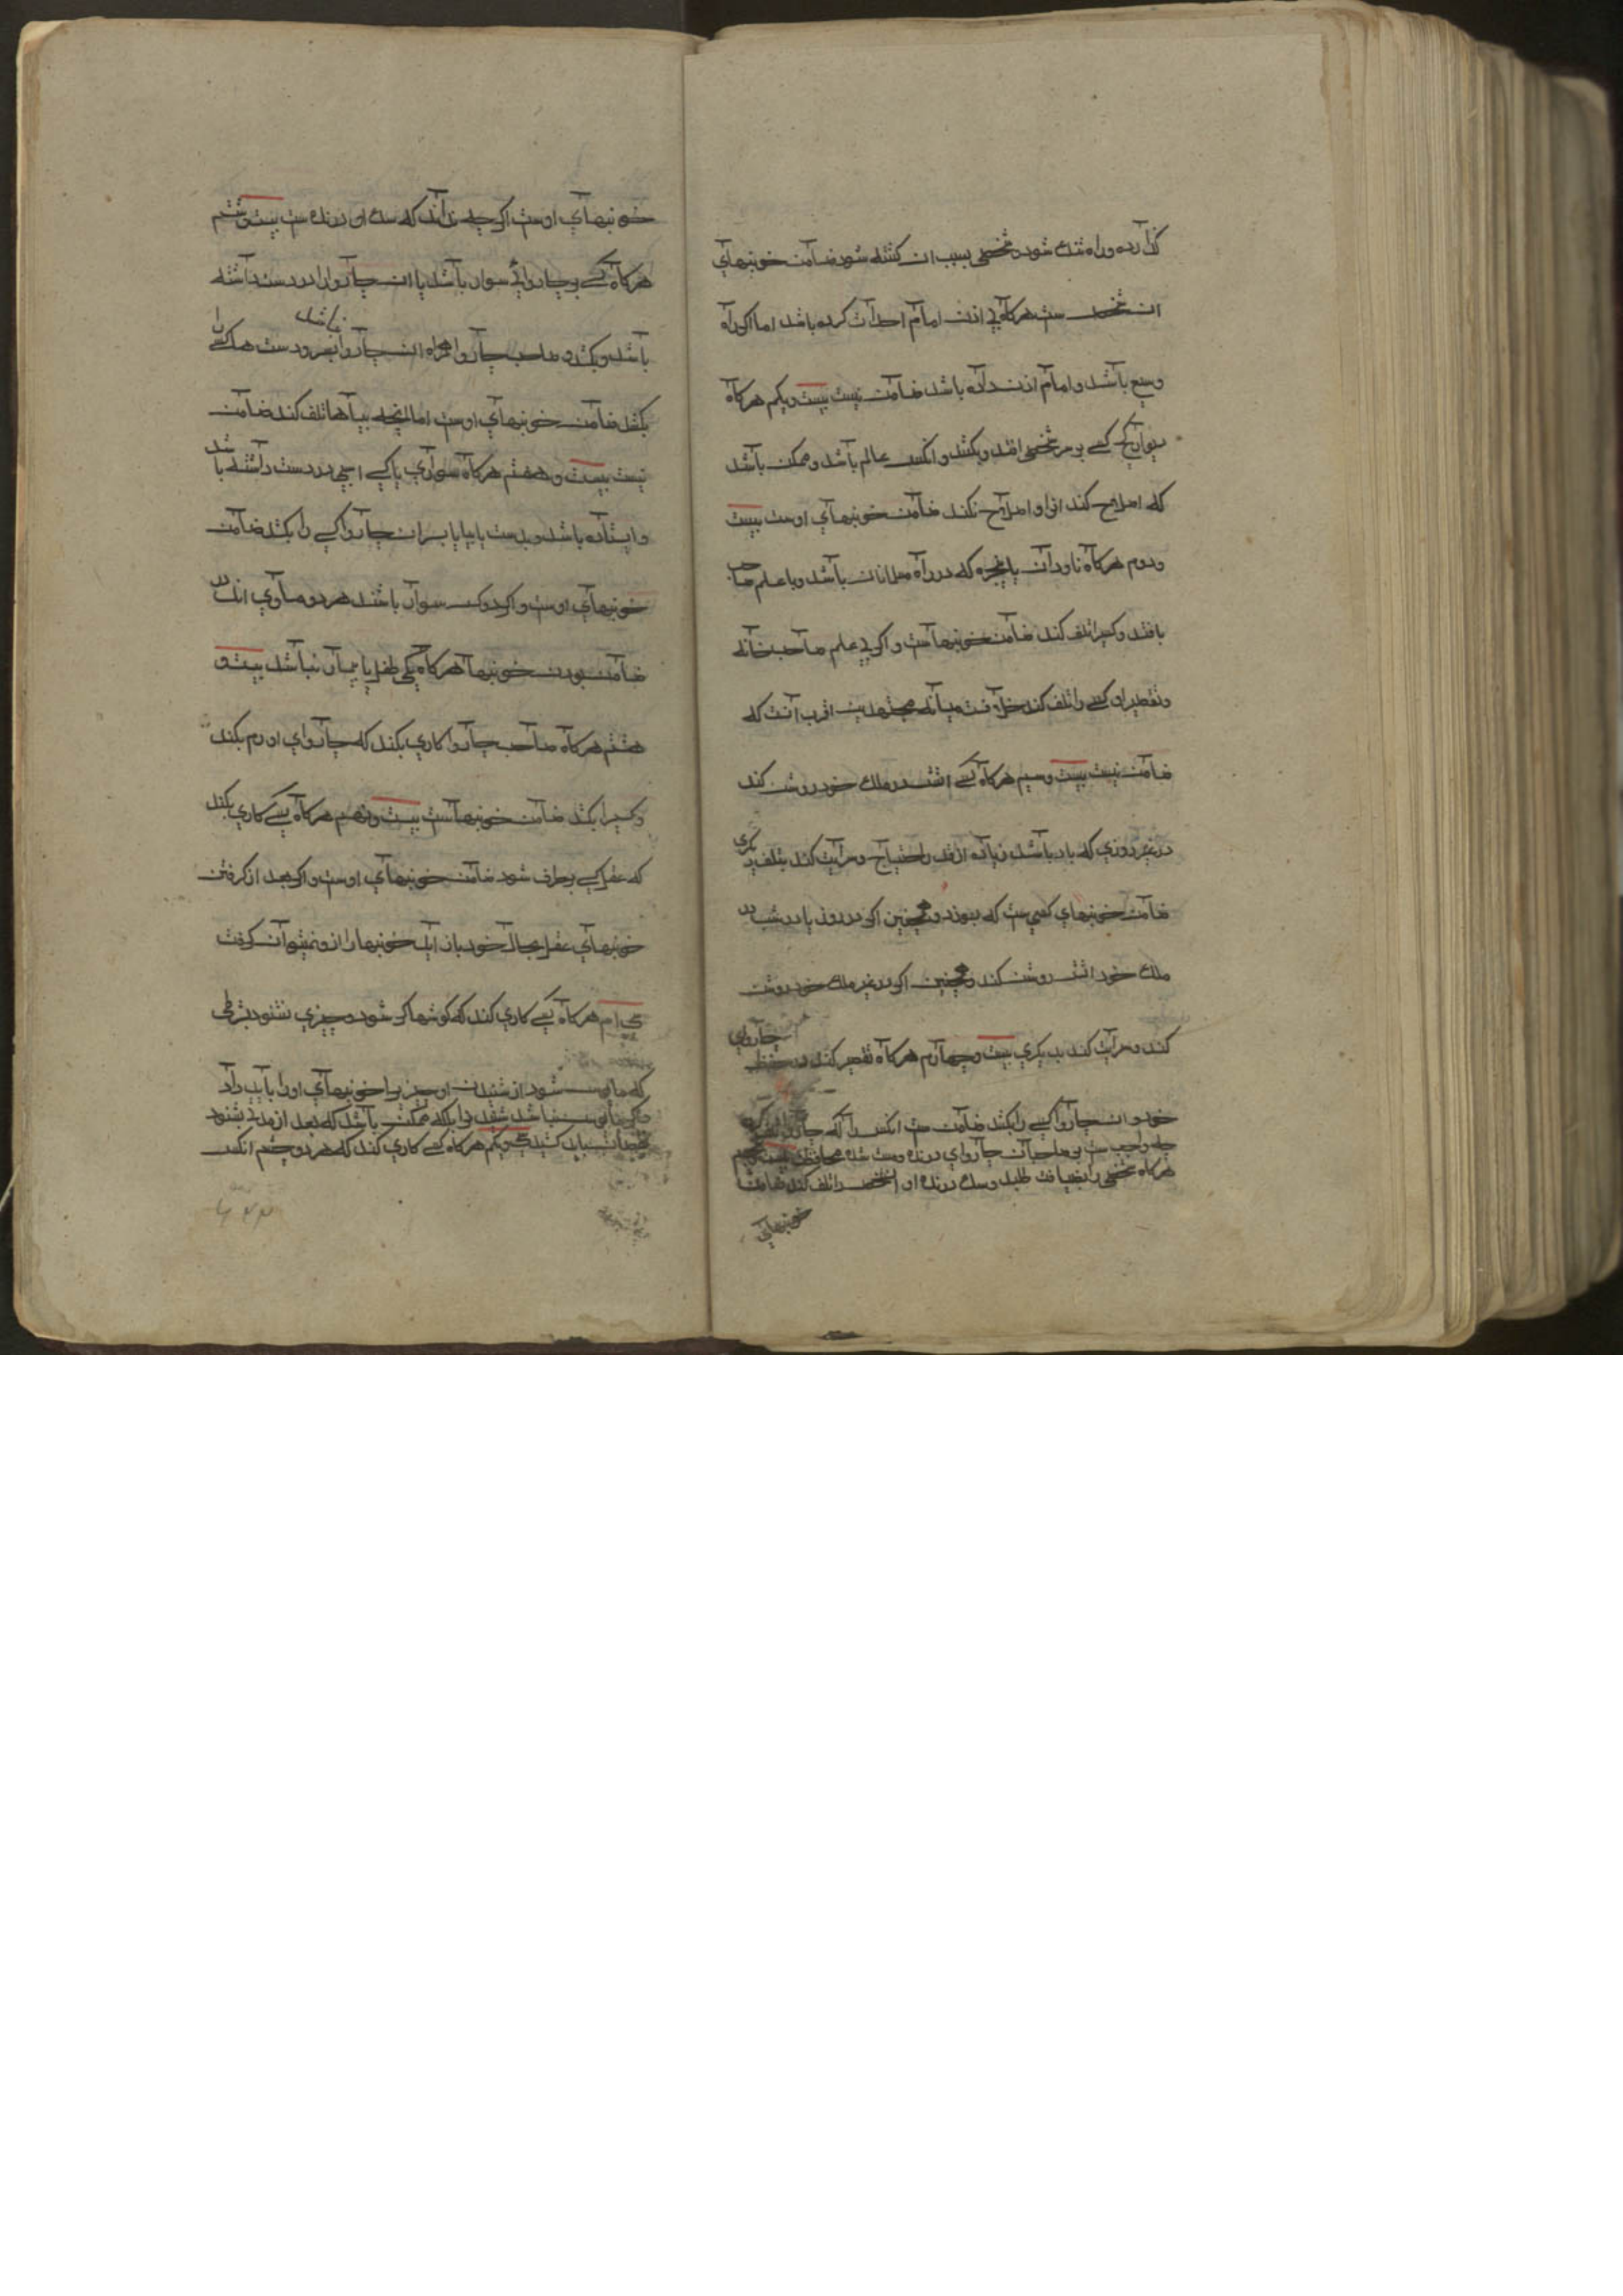 گذارده و راه تنك شود و شخصی بسبب ان کشته شود ضامن خونبهای
ان شخص ست هرکاه بی اذن امام احداث کرده باشد اما اکر راه
وسیع باشد و امام اذن داده باشد ضامن نیست بیست و یکم هرکاه
دیوار کج کسی بر سر شخصی افتد و بکشد و انکس عالم باشد و ممکن باشد
که اصلاح کند انرا و اصلاح نکند ضامن خونبهای اوست بیست
و دوم هرکاه ناودان یا پنجره که در راه مسلمانان باشد و با علم صاحب
بافتد و کسیرا تلف کند ضامن خونبهاست و اکر بی علم صاحب خانه
و تقصیر او کسی را تلف کند خلافست میانه مجتهدین اقرب آنست که
ضامن نیست بیست و سیم هرکاه کسی اتش در ملك خود روشن کند
در غیر روزی که باد باشد زیاده از قدر احتیاج و سرایت کند بتلف دیکری
ضامن خونبهای کسی ست که بسوزد و همچنین اکر در روز یا در شب در
ملك خود اتش روشن کند و همچنین اکر در غیر ملك خود روشن
کند و سرایت کند بدیکری بیست و چهارم هرکاه تقصیر کند در حفظ چاروای
خود و ان چاروا کسی را بکشد ضامن ست انکس را که چاروا
چه واجب ست بر صاحبان چاروای درنده و مست شده محافظت بیست و پنجم
هرکاه شخصی را بضیافت طلبد و سك درنده او ان شخص را تلف کند ضامن
خونبهای
خونبهای اوست اکرچه نداند که سك او درنده ست بیست و ششم
هرکاه کسی بر چاروائی سوار باشد یا ان چاروا را در دست داشته
باشد و بکشد و صاحب چاروا همراه ان چاروا نباشد بسر و دست هرکسی را
بکشد ضامن خونبهای اوست اما انچه بپاها تلف کند ضامن
نیست بیست و هفتم هرکاه سواری یا کسی اسپی در دست داشته باشد
و ایستاده باشد و بدست یا بپا یا بسر ان چاروا کسی را بکشد ضامن
خونبهای اوست و اکر دو کس سوار باشند هر دو مساوی اند در
ضامن بودن خونبها هرکاه یکی طفل یا بیمار نباشد بیست و
هشتم هرکاه صاحب چاروا کاری بکند که چاروای او رم بکند
و کسیرا بکشد ضامن خونبهاست بیست و نهم هرکاه کسی کاری بکند
که عقل کسی برطرف شود ضامن خونبهای اوست و اکر بعد از کرفتن
خونبهای عقل بحال خود باز اید خونبها را ازو نمیتوان کرفت
سی ام هرکاه کسی کاری کند که کوشها کر شود و چیزی نشنود بشرطی
که مایوس شود از شنیدن او چیز را خونبهای او را باید داد
و اکر مایوس نباشد شنیدن را بلکه ممکن باشد که بعد از مدتی بشنود
باید کشید سی و یکم هرکاه کسی کاری کند که هر دو چشم انکس